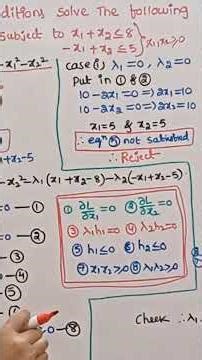 ditions solve the following
subject to x₁+x₂≤8
-x₁+x₂≤5
x₁,x₂≥0
-x₁²-x₂²
case(i) λ₁=0, λ₂=0
Put in ① & ②
10-2x₁=0⇒2x₁=10
10-2x₂=0⇒2x₂=10
x₁=5 & x₂=5
∴ eqⁿ ⑤ not satisfied
∴ Reject
+x₂-5
-x₂²-λ₁(x₁+x₂-8)-λ₂(-x₁+x₂-5)
=0 —①
=0 —②
—③
—④
—⑤
0—⑧
① ∂L/∂x₁=0 ② ∂L/∂x₂=0
③ λ₁h₁=0 ④ λ₂h₂=0
⑤ h₁≤0 ⑥ h₂≤0
⑦ x₁x₂≥0 ⑧ λ₁λ₂≥0
Check ∴ λ₁